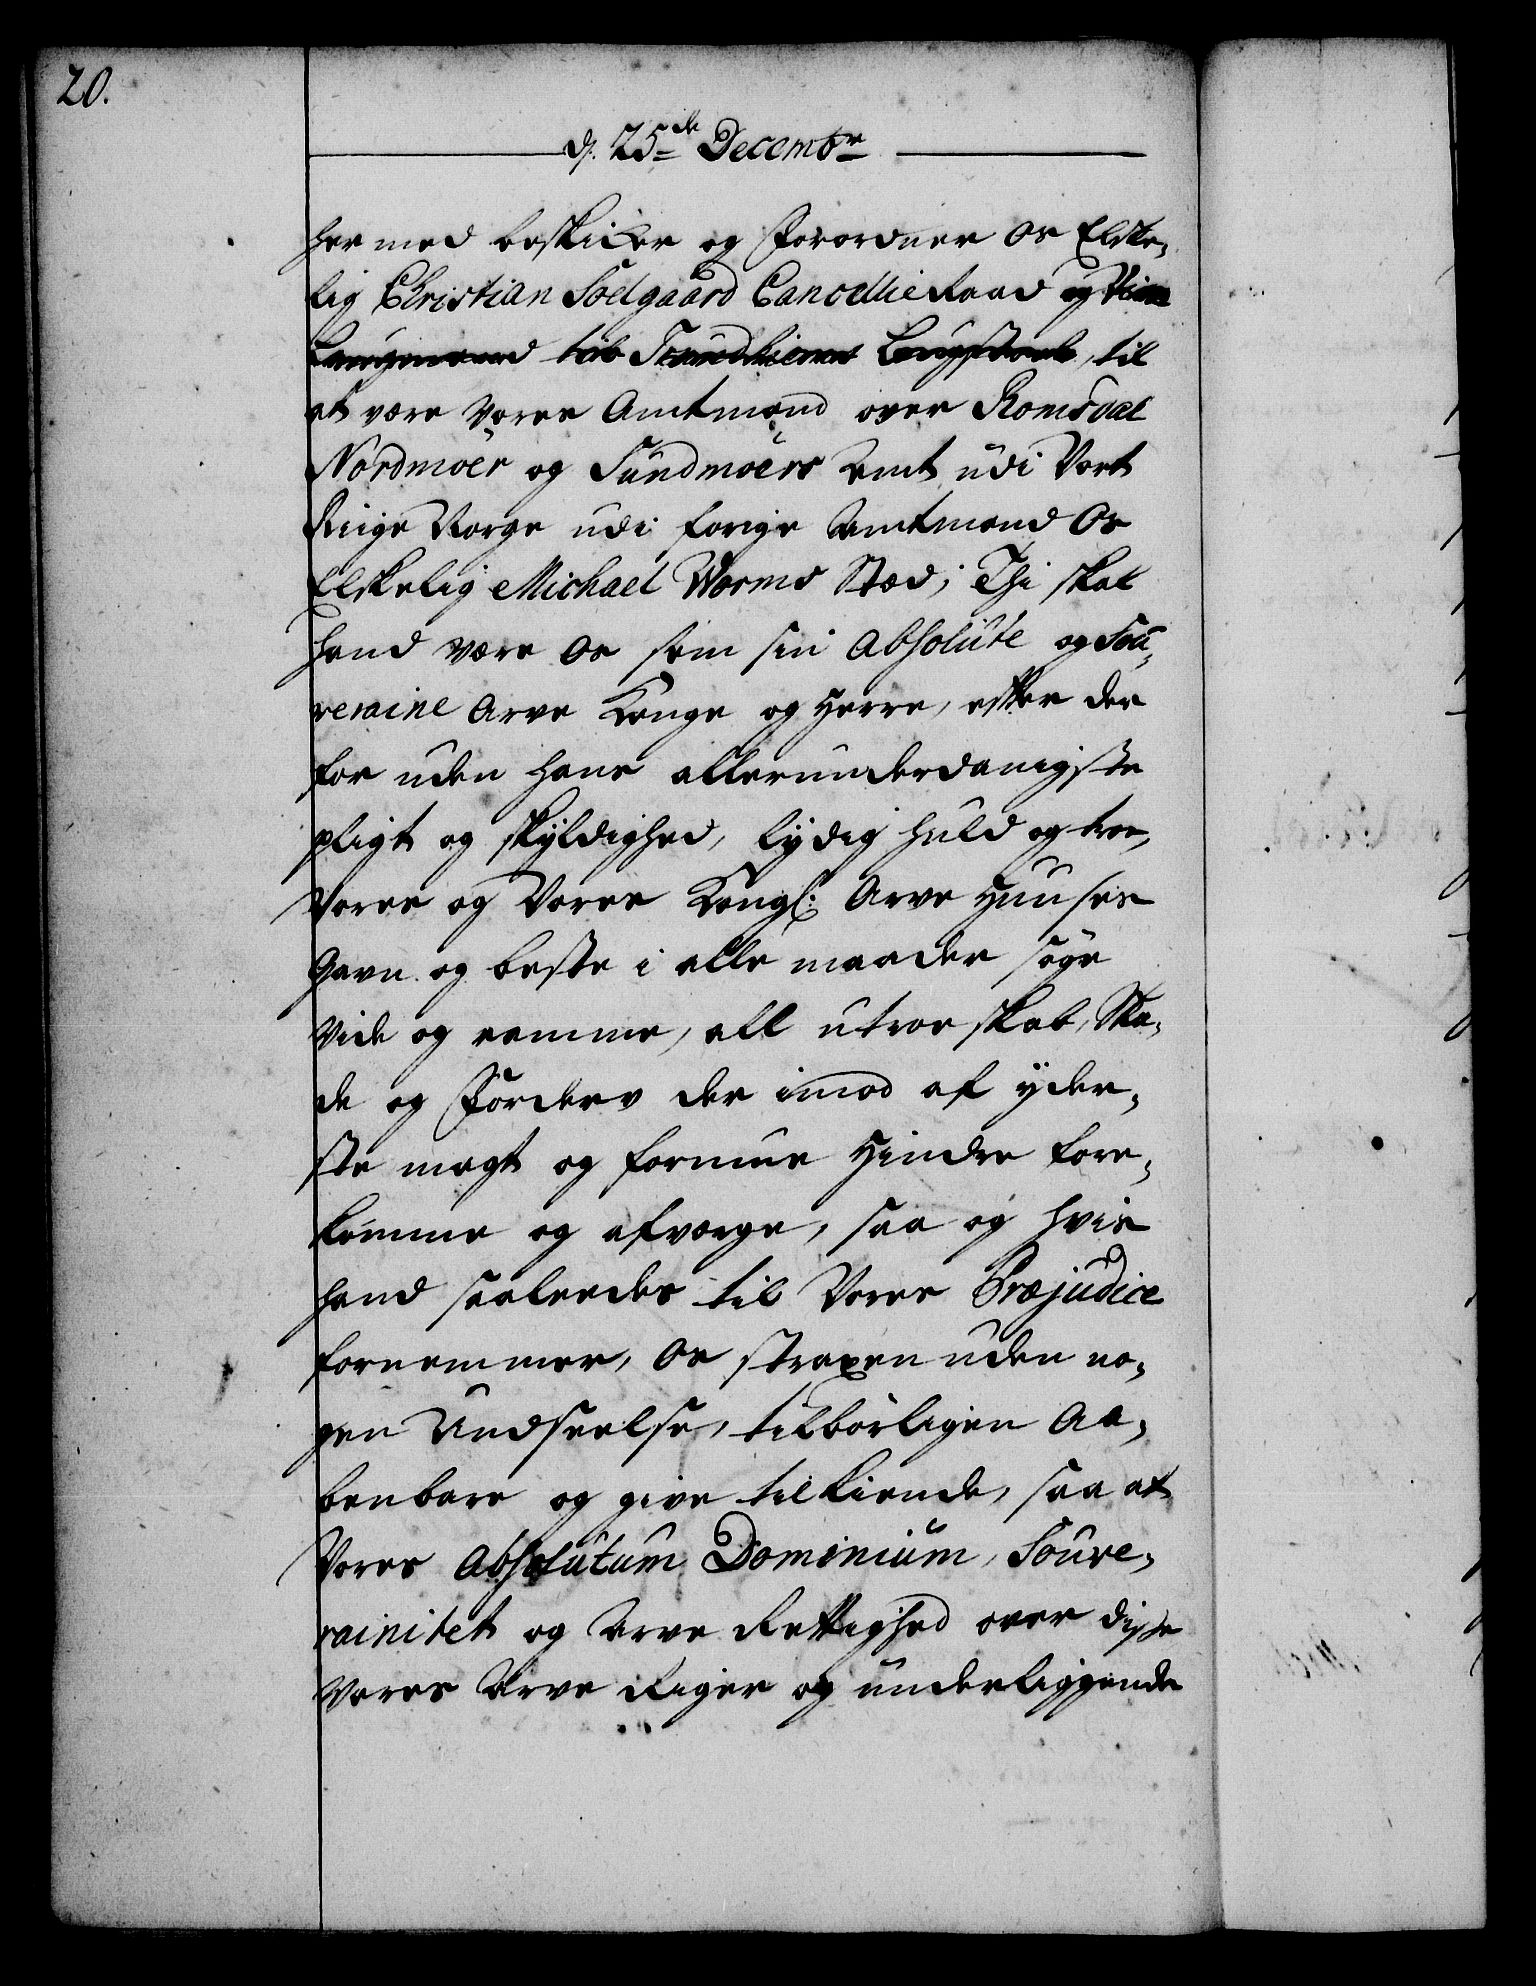 20.
d. 25de Decembr
her med beskicker og Forordner Os Elske,
lig Christian Soelgaard Cancellie Raad og Vice
Laugmand til Trundhiems Laugstoel, til
at være Vores Amtmand over Romsdal
Nordmöer og Sundmöers Amt udi Vort
Riige Norge udi forige Amtmand Os
Elskelig Michael Worms Stæd; Thi skal
hand være Os som sin Absolute og Sou,
veraine Arve Konge og Herre, efter der
for uden hans allerunderdanigste
pligt og skyldighed, lydig huld og troe,
Vores og Vores Kongl: Arve Huuses
Gavn og beste i alle maader søge
Vide og ramme, all utroeskab, Ska,
de og Forderv der imod af yder,
ste magt og formue Hindre fore,
komme og afverge, saa og hvis
hand saaleedes til Vores Præjudice
fornemmer, Os straxen uden no,
gen Undseelse, tilbörligen Aa,
benbare og give tilkiende, saa at
Vores Absolutum Dominium, Souve,
rainitet og Arve Rettighed over disse
Vores Arve Riger og underliggende